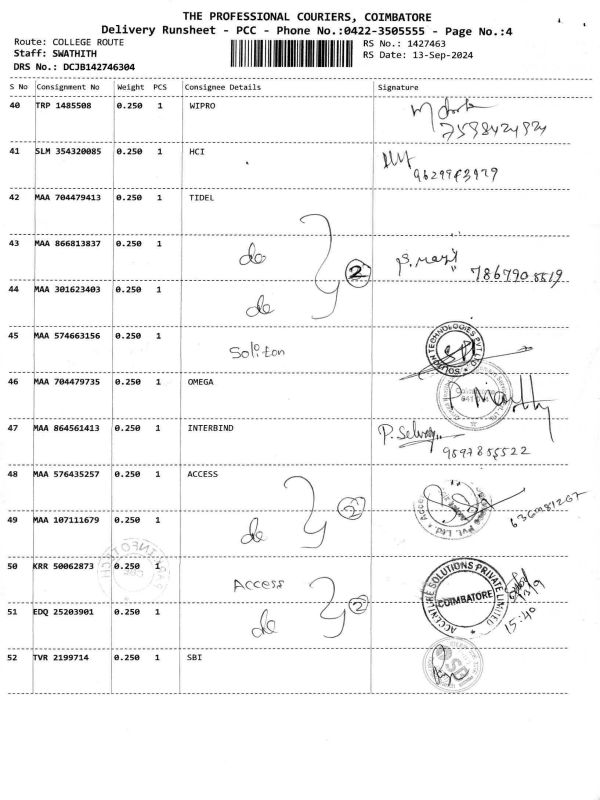 THE PROFESSIONAL COURIERS, COIMBATORE
Delivery Runsheet - PCC - Phone No.:0422-3505555 - Page No.:4
Route: COLLEGE ROUTE RS No.: 1427463
Staff: SWATHITH RS Date: 13-Sep-2024
DRS No.: DCJB142746304
S No Consignment No Weight PCS Consignee Details Signature
40 TRP 1485508 0.250 1 WIPRO
41 SLM 354320085 0.250 1 HCI
42 MAA 704479413 0.250 1 TIDEL
43 MAA 866813837 0.250 1 do 2
44 MAA 301623403 0.250 1 do
45 MAA 574663156 0.250 1 Soliton
46 MAA 704479735 0.250 1 OMEGA
47 MAA 864561413 0.250 1 INTERBIND P. Selva
9597855522
48 MAA 576435257 0.250 1 ACCESS
49 MAA 107111679 0.250 1 do 2
50 KRR 50062873 0.250 1 Access ACCENTURE SOLUTIONS PRIVATE LIMITED COIMBATORE
51 EDQ 25203901 0.250 1 do 2 15:40
52 TVR 2199714 0.250 1 SBI